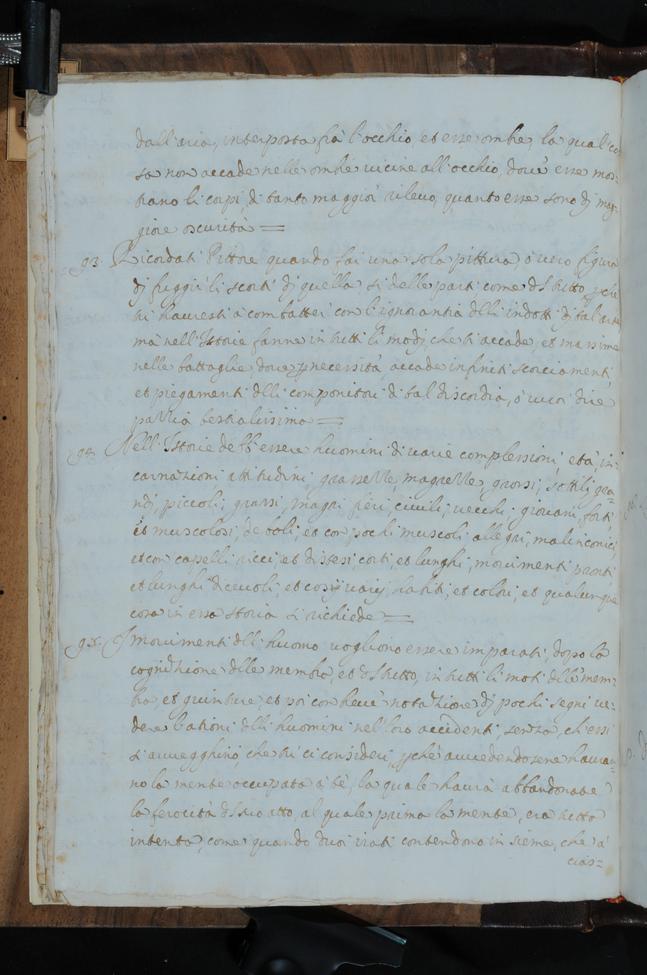 dall'aria, interposta frà l'occhio, et esse ombre, la qual co:
sa non accade nelle ombre vicine all'occhio, dove esse mos:
trano li corpi di tanto maggior rilevo, quanto esse sono dj mag:
giore oscurità =
93. Ricordati Pittore quando fai una sola pittura, ò vero figura
dj fuggir li scorti dj quella, si delle parti come del tutto, pche
tu haveresti à combatter con l'ignorantia delli indotti dj tal arte
mà nell'Istorie fanne in tutti li modj che ti accade, et massime
nelle battaglie dove p necessità accade infiniti scorciamenti,
et piegamenti delli componitori di tal discordia, ò vuoi dire
pazzia bestialissima =
94. Nell'Istorie debb essere huomini di varie complessioni, età, in:
carnazioni, attitudini, grassezze, magrezze, grossi, sottili, gra=
ndj, piccoli, grassi, magri, fieri, civili, vecchi, giovani, forti
et muscolosi, deboli, et con pochi muscoli, allegri, malinconici,
et con capelli ricci, et distesi, corti, et lunghi, movimenti pronti
et lunghi di cuoli, et cosj varij habiti, et colori, et qualunque
cosa in essa storia si richiede =
95. I movimenti dell'huomo vogliono essere imparati, dopo la
cognitione delle membra, et del tutto, in tutti li moti delle mem:
bra, et giunture, et poi con breve notatione dj pochi segni ve:
dere l'ationi delli huomini nel loro accidenti, senza, ch'essi
si avvegghino che tù ci consideri, pche avvedendosene havra:
no la mente occupata à tè, la quale havrà abbandonata
la ferocità del suo atto, al quale prima la mente, era tutta
intenta, come quando duoi irati contendono insieme, che à
cias=